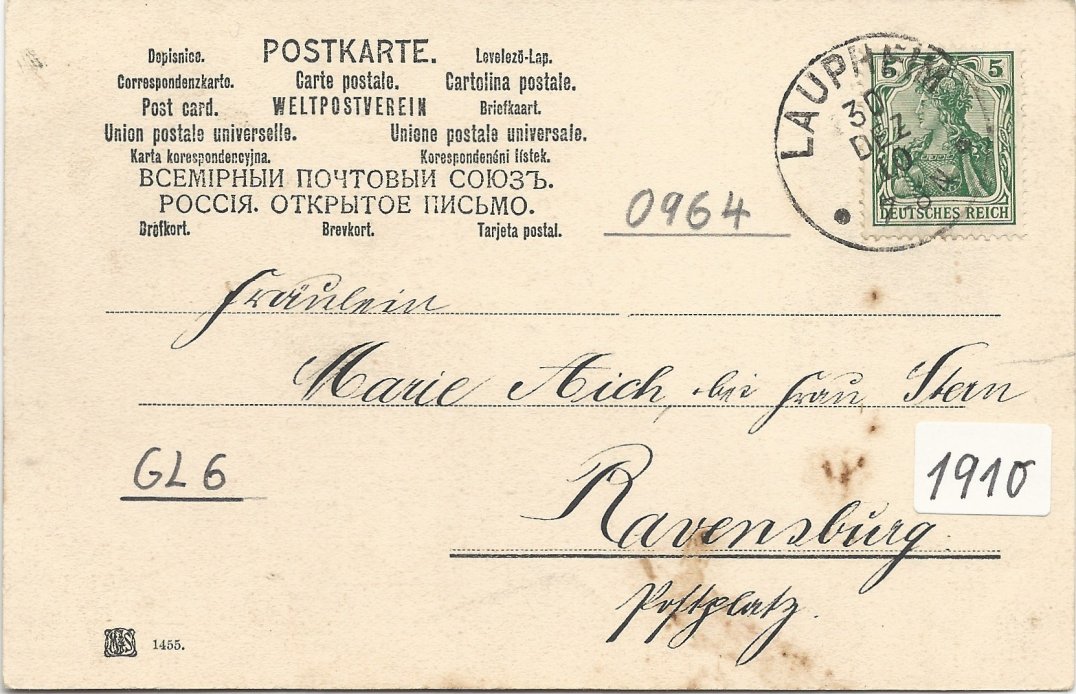 POSTKARTE.
Dopisnice. Levelező-Lap.
Correspondenzkarte. Carte postale. Cartolina postale.
Post card. WELTPOSTVEREIN Briefkaart.
Union postale universelle. Unione postale universale.
Karta korespondencyjna. Korespondenéni lístek.
ВСЕМІРНЫИ ПОЧТОВЫИ СОЮЗЪ.
РОССІЯ. ОТКРЫТОЕ ПИСЬМО.
Brefkort. Brevkort. Tarjeta postal.
0964
LAUPHEIM
30
DEZ
10
5 5
DEUTSCHES REICH
Fräulein
Marie Aich, bei Frau Stern
GL6
1910
Ravensburg
Postplatz.
1455.